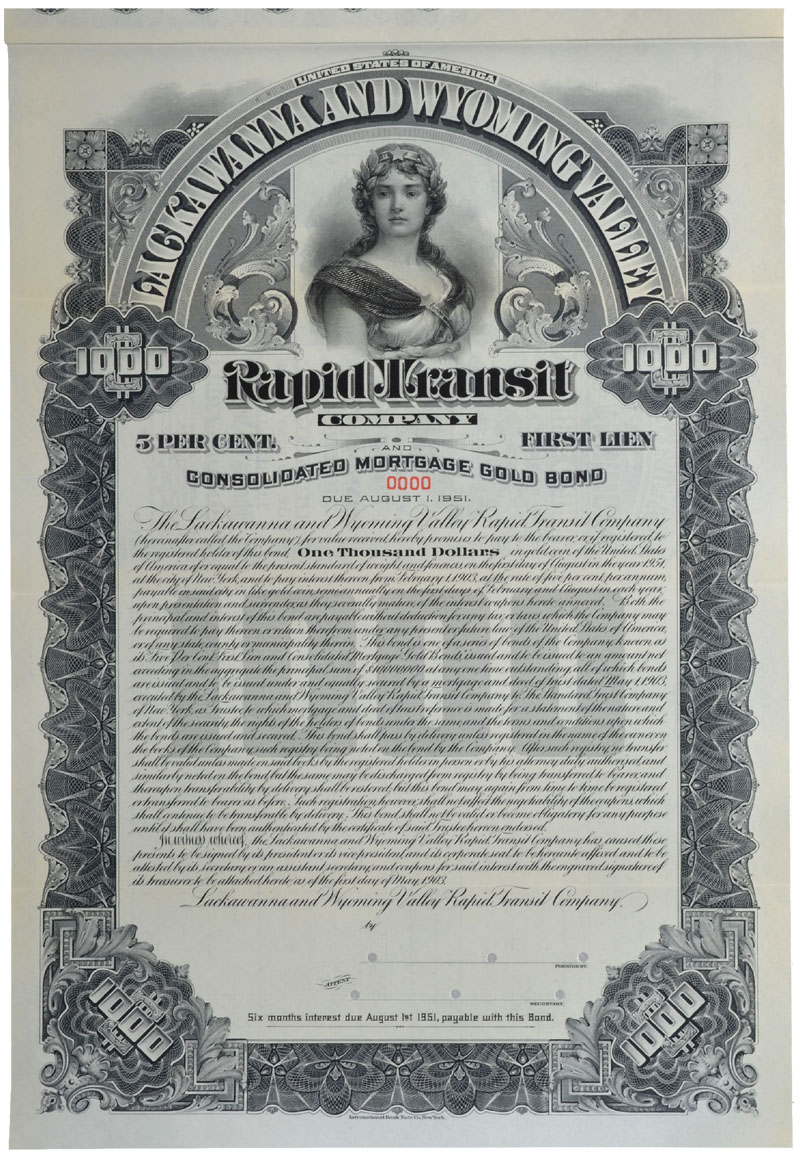 UNITED STATES OF AMERICA
LACKAWANNA AND WYOMING VALLEY
1000 1000
Rapid Transit
COMPANY
5 PER CENT. FIRST LIEN
AND
CONSOLIDATED MORTGAGE GOLD BOND
0000
DUE AUGUST 1, 1951.
The Lackawanna and Wyoming Valley Rapid Transit Company
(hereinafter called the Company), for value received, hereby promises to pay to the bearer, or, if registered, to
the registered holder of this bond, One Thousand Dollars, in gold coin of the United States
of America of or equal to the present standard of weight and fineness, on the first day of August in the year 1951,
at the city of New York, and to pay interest thereon from February 1, 1903, at the rate of five per cent. per annum,
payable in said city in like gold coin, semi-annually on the first days of February and August in each year,
upon presentation and surrender, as they severally mature, of the interest coupons hereto annexed. Both the
principal and interest of this bond are payable without deduction for any tax or taxes which the Company may
be required to pay thereon or retain therefrom under any present or future law of the United States of America,
or of any state, county or municipality therein. This bond is one of a series of bonds of the Company, known as
its Five Per Cent. First Lien and Consolidated Mortgage Gold Bonds, issued and to be issued to an amount not
exceeding in the aggregate the principal sum of at any one time outstanding, all of which bonds
are issued and to be issued under and equally secured by a mortgage and deed of trust dated May 1, 1903,
executed by the Lackawanna and Wyoming Valley Rapid Transit Company to The Standard Trust Company
of New York, as Trustee, to which mortgage and deed of trust reference is made for a statement of the nature and
extent of the security, the rights of the holders of bonds under the same, and the terms and conditions upon which
the bonds are issued and secured. This bond shall pass by delivery unless registered in the name of the owner on
the books of the Company, such registry being noted on the bond by the Company. After such registry, no transfer
shall be valid unless made on said books by the registered holder in person or by his attorney duly authorized, and
similarly noted on the bond, but the same may be discharged from registry by being transferred to bearer, and
thereupon transferability by delivery shall be restored, but this bond may again from time to time be registered
or transferred to bearer as before. Such registration, however, shall not affect the negotiability of the coupons, which
shall continue to be transferable by delivery. This bond shall not be valid or become obligatory for any purpose
until it shall have been authenticated by the certificate of said Trustee hereon endorsed.
In witness whereof, the Lackawanna and Wyoming Valley Rapid Transit Company has caused these
presents to be signed by its president or its vice president, and its corporate seal to be hereunto affixed and to be
attested by its secretary or an assistant secretary, and coupons for said interest with the engraved signature of
its treasurer to be attached hereto as of the first day of May, 1903.
Lackawanna and Wyoming Valley Rapid Transit Company,
by
PRESIDENT.
ATTEST
SECRETARY.
Six months interest due August 1st 1951, payable with this Bond.
1000 1000
International Bank Note Co. New York.